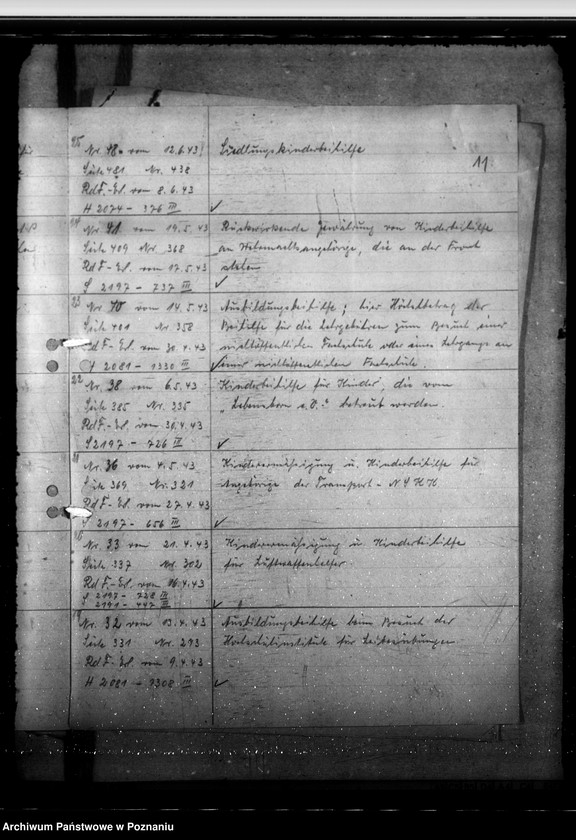 11
25
Nr. 48. vom 12.6.43
Seite 481 Nr. 438
RdF.-Erl. vom 8.6.43
H 2074 - 376 III ✓
Siedlungskinderbeihilfe
24
Nr. 41 vom 19.5.43
Seite 409 Nr. 368
RdF-Erl. vom 17.5.43
S 2197 - 737 III ✓
Rückwirkende Gewährung von Kinderbeihilfe
an Wehrmachtsangehörige, die an der Front
stehen
23
Nr. 40 vom 14.5.43
Seite 401 Nr. 358
RdF-Erl. vom 30.4.43
H 2081 - 1330 III ✓
Ausbildungsbeihilfe; hier Höchstbetrag der
Beihilfe für die Lehrgebühren zum Besuch einer
nichtöffentlichen Fachschule oder eines Lehrgangs an
einer nichtöffentlichen Fachschule.
22
Nr. 38 vom 6.5.43
Seite 385 Nr. 335
RdF.-Erl. vom 30.4.43
S 2197 - 726 III ✓
Kinderbeihilfe für Kinder, die vom
"Lebensborn e.V." betreut werden.
Nr. 36 vom 4.5.43
Seite 369 Nr. 321
RdF-Erl. vom 27.4.43
S 2197 - 656 III ✓
Kinderermäßigung u. Kinderbeihilfe für
Angehörige der Transport-NSKK.
Nr. 33 vom 21.4.43
Seite 337 Nr. 302
RdF.-Erl. vom 16.4.43
S 2197 - 728 III
S 2191 - 447 III ✓
Kinderermäßigung u. Kinderbeihilfe
für Luftwaffenhelfer.
Nr. 32 vom 13.4.43
Seite 331 Nr. 293
RdF-Erl. vom 9.4.43
H 2081 - 1308 III ✓
Ausbildungsbeihilfe beim Besuch der
Hochschulinstitute für Leibesübungen
Archiwum Państwowe w Poznaniu